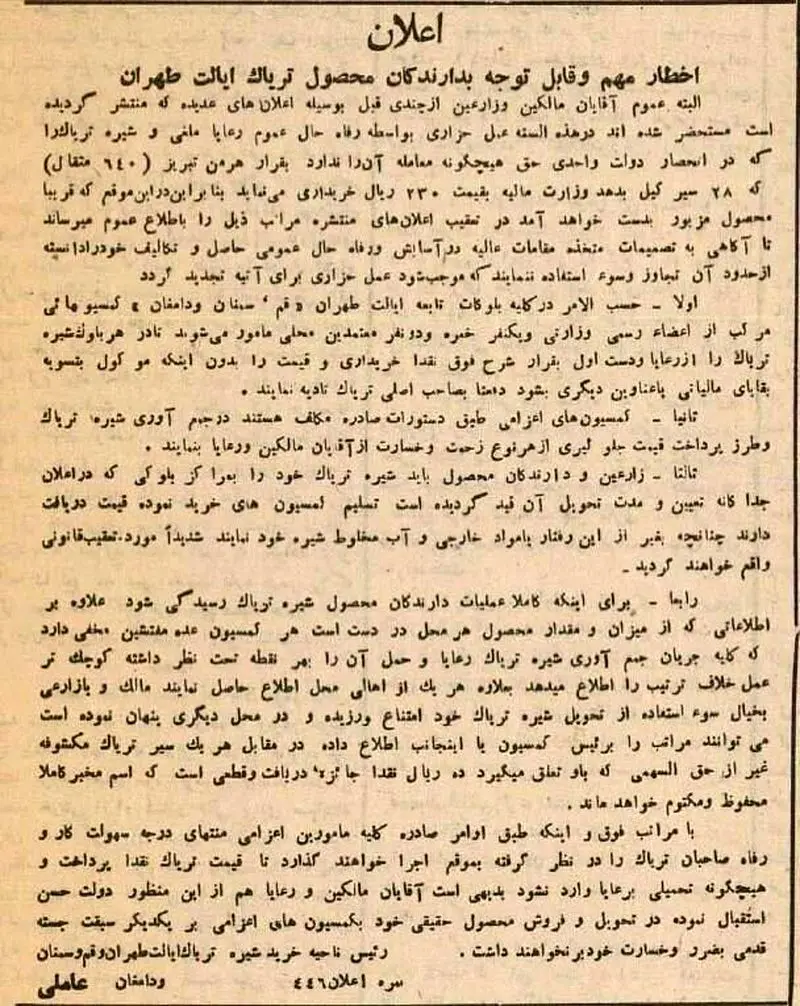 اعلان
اخطار مهم وقابل توجه بدارندكان محصول ترياك ايالت طهران
البته عموم آقايان مالكين وزارعين ازچندى قبل بوسيله اعلان‌هاى عديده كه منتشر گرديده
است مستحضر شده اند درهذه السنه عمل حزارى بواسطه رفاه حال عموم رعايا ملغى و شيره ترياك‌را
كه در انحصار دولت واحدى حق هيچگونه معامله آن‌را ندارد بقرار هرمن تبريز (٦٤٠ مثقال)
كه ٢٨ سير كيل بدهد وزارت ماليه بقيمت ٢٣٠ ريال خريدارى مى‌نمايد بنا براين‌دراين‌موقع كه قريبا
محصول مزبور بدست خواهد آمد در تعقيب اعلان‌هاى منتشره مراتب ذيل را باطلاع عموم ميرساند
تا آگاهى به تصميمات متخذه مقامات عاليه درآسايش ورفاه حال عمومى حاصل و تكاليف خودرادانسته
ازحدود آن تجاوز وسوء استفاده ننمايندكه موجب‌شود عمل حزارى براى آتيه تجديد گردد
اولا ـ حسب الامر دركليه بلوكات تابعه ايالت طهران «قم ، سمنان ودامغان» كميسيو نهائى
مركب از اعضاء رسمى وزارتى ويكنفر خبره ودونفر معتمدين محلى مامور مى‌شوند تادر هربلوك‌شيره
ترياك را ازرعايا ودست اول بقرار شرح فوق نقدا خريدارى و قيمت را بدون اينكه مو كول بتسويه
بقاياى مالياتى ياعناوين ديگرى بشود دفعتا بصاحب اصلى ترياك تاديه نمايند .
ثانيا ـ كمسيون‌هاى اعزامى طبق دستورات صادره مكلف هستند درجمع آورى شيره ترياك
وطرز پرداخت قيمت جلو گيرى ازهرنوع زحمت وخسارت ازآقايان مالكين ورعايا بنمايند .
ثالثا ـ زارعين و دارندكان محصول بايد شيره ترياك خود را بمرا كز بلوكى كه دراعلان
جدا گانه تعيين و مدت تحويل آن قيد گرديده است تسليم كمسيون هاى خريد نموده قيمت دريافت
دارند چنانچه بغير از اين رفتار يامواد خارجى و آب مخلوط شيره خود نمايند شديداً مورد.تعقيب‌قانونى
واقع خواهند گرديد ـ
رابعا ـ براى اينكه كاملا عمليات دارندكان محصول شيره ترياك رسيدگى شود علاوه بر
اطلاعاتى كه از ميزان و مقدار محصول هر محل در دست است هر كمسيون عده مفتشين مخفى دارد
كه كليه جريان جمع آورى شيره ترياك رعايا و حمل آن را بهر نقطه تحت نظر داشته كوچك تر
عمل خلاف ترتيب را اطلاع ميدهد بعلاوه هر يك از اهالى محل اطلاع حاصل نمايند مالك و يازارعى
بخيال سوء استفاده از تحويل شيره ترياك خود امتناع ورزيده و در محل ديگرى پنهان نموده است
مى توانند مراتب را برئيس كمسيون يا اينجانب اطلاع داده در مقابل هر يك سير ترياك مكشوفه
غير از حق السهمى كه باو تعلق ميگيرد ده ريال نقدا جائزه دريافت وقطعى است كه اسم مخبركاملا
محفوظ ومكتوم خواهد ماند .
با مراتب فوق و اينكه طبق اوامر صادره كليه مامورين اعزامى منتهاى درجه سهولت كار و
رفاه صاحبان ترياك را در نظر گرفته بموقع اجرا خواهند گذارد تا قيمت ترياك نقدا پرداخت و
هيچگونه تحميلى برعايا وارد نشود بديهى است آقايان مالكين و رعايا هم از اين منظور دولت حسن
استقبال نموده در تحويل و فروش محصول حقيقى خود بكمسيون هاى اعزامى بر يكديگر سبقت جسته
قدمى بضرر وخسارت خودبرنخواهند داشت . رئيس ناحيه خريد شيره ترياك‌ايالت‌طهران‌وقم‌وسمنان
نمره اعلان ٤٤٦ ودامغان عاملى